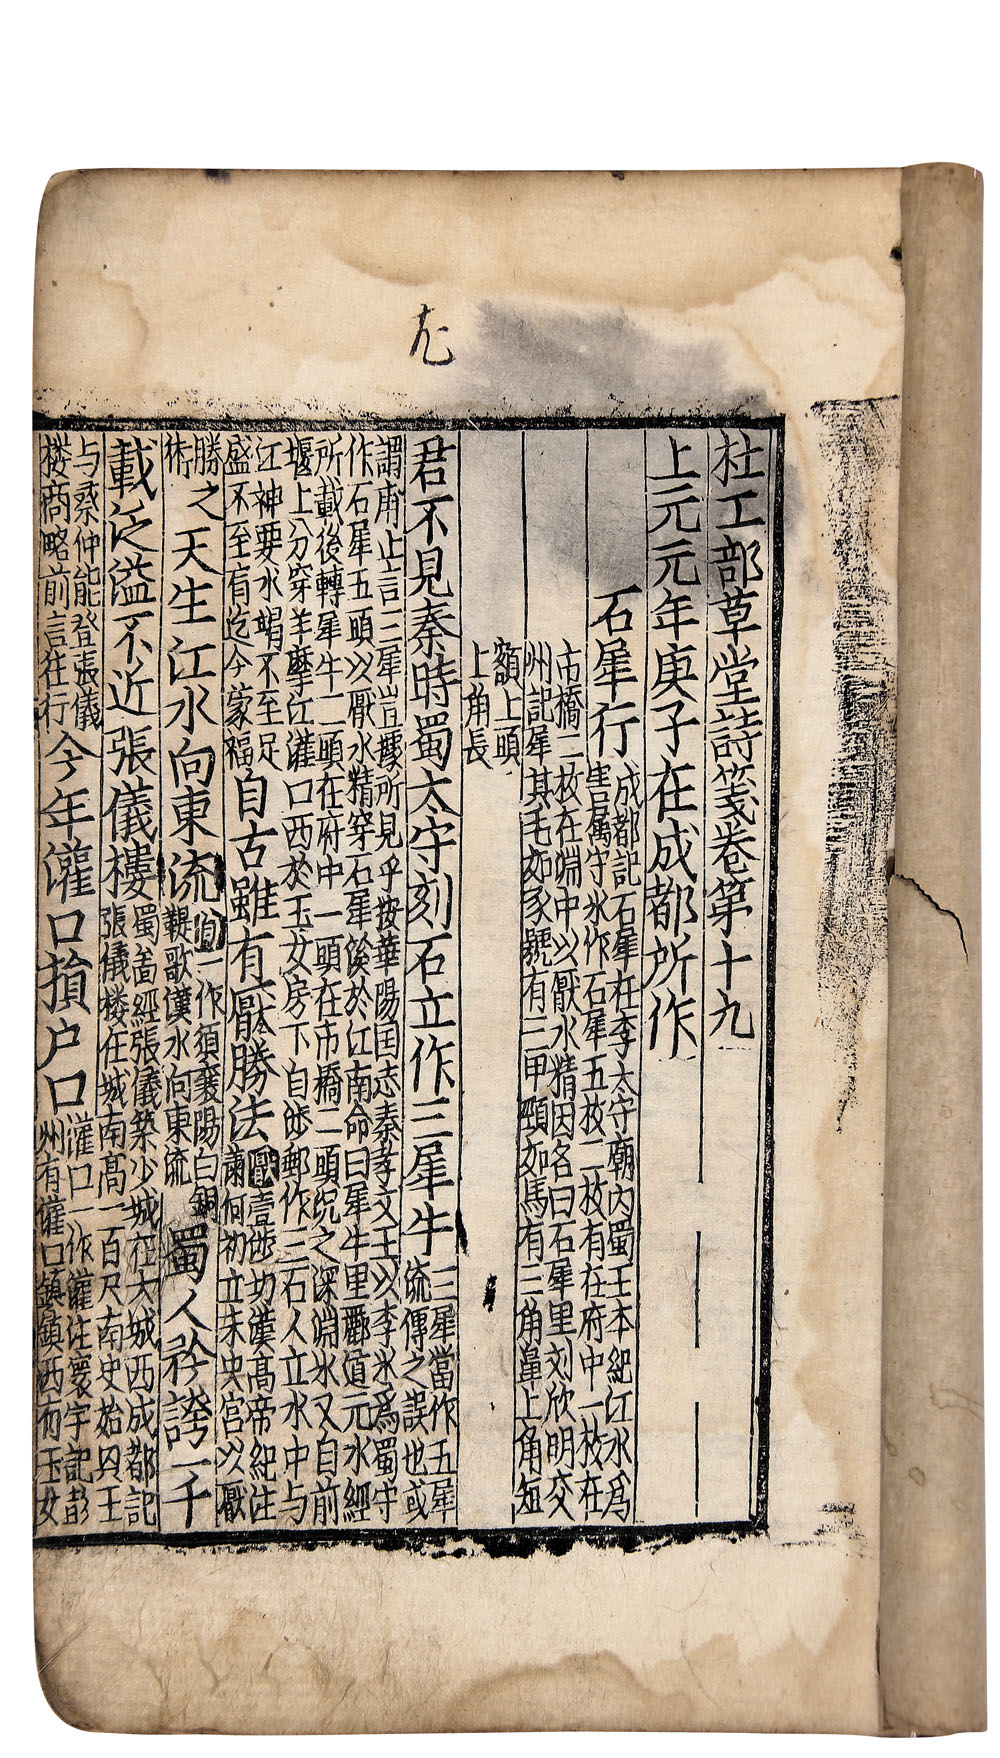 杜工部草堂詩箋卷第十九
上元元年庚子在成都所作
石犀行 成都記石犀在李太守廟內蜀王本紀江水爲
害属守氷作石犀五枚二枚有在府中一枚在
市橋二枚在淵中以厭水精因名曰石犀里刘欣明交
州記犀其毛如豕蹏有三甲頭如馬有三角鼻上角短
額上頭
上角長
君不見秦時蜀太守刻石立作三犀牛 三犀當作五犀
流傳之誤也或
謂甫止言三犀豈據所見乎按華陽囯志秦孝文王以李氷爲蜀守
作石犀五頭以厭水精穿石犀溪於江南命曰犀牛里酈道元水經
所載後轉犀牛二頭在府中一頭在市橋二頭沉之深淵水又自前
堰上分穿羊摩江灌口西於玉女房下自涉郵作三石人立水中与
江神要水竭不至足
盛不至有迄今蒙福
自古雖有厭勝法 厭壹涉切漢高帝紀注
蕭何初立未央宮以厭
勝之
術
天生江水向東流 向一作須襄陽白銅
鞮歌漢水向東流
蜀人矜誇一千
載泛溢不近張儀樓 蜀啚經張儀築少城在大城西成都記
張儀楼在城南高一百尺南史始興王
与桑仲能登張儀
楼商略前言往行
今年灌口損户口 灌口一作灌注寰宇記彭
州有灌口鎮鎮西有玉女